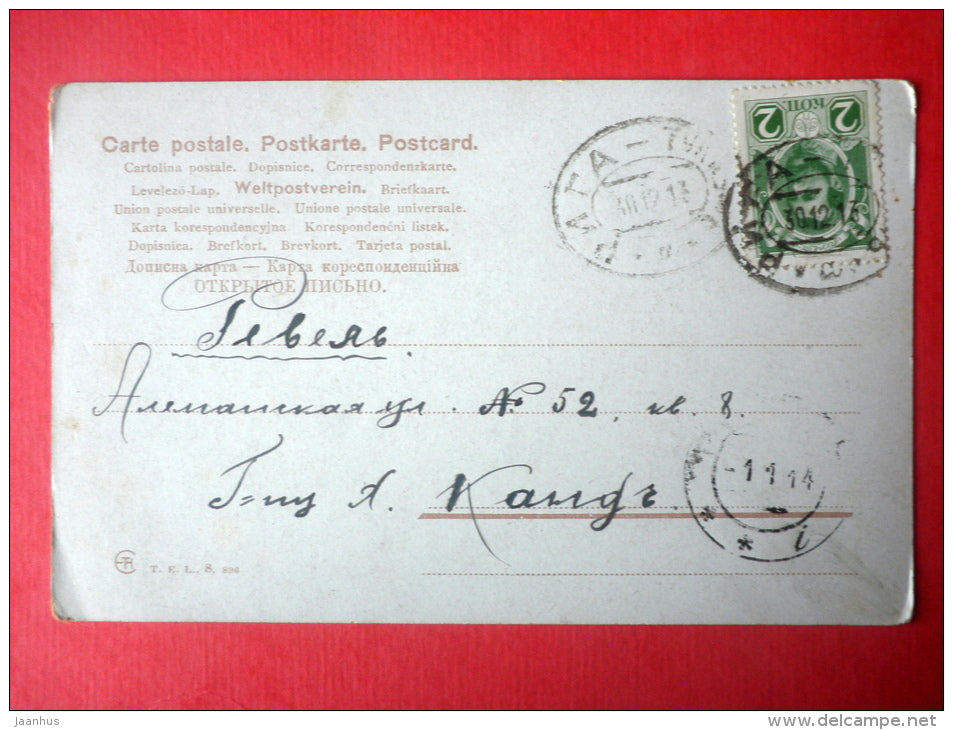 Carte postale. Postkarte. Postcard.
Cartolina postale. Dopisnice. Correspondenzkarte.
Levelező-Lap. Weltpostverein. Briefkaart.
Union postale universelle. Unione postale universale.
Karta korespondencyjna. Korespondenční listek.
Dopisnica. Brefkort. Brevkort. Tarjeta postal.
Дописна карта — Карта кореспонденційна
ОТКРЫТОЕ ПИСЬМО.
2 КОП 2
РИГА
30 12 13
РИГА
30 12 13
Ревель.
ул. № 52, кв. 8.
Г-жу А. Кандъ.
-1 1 14
T. E. L. 8. 896
Jaanhus
www.delcampe.net